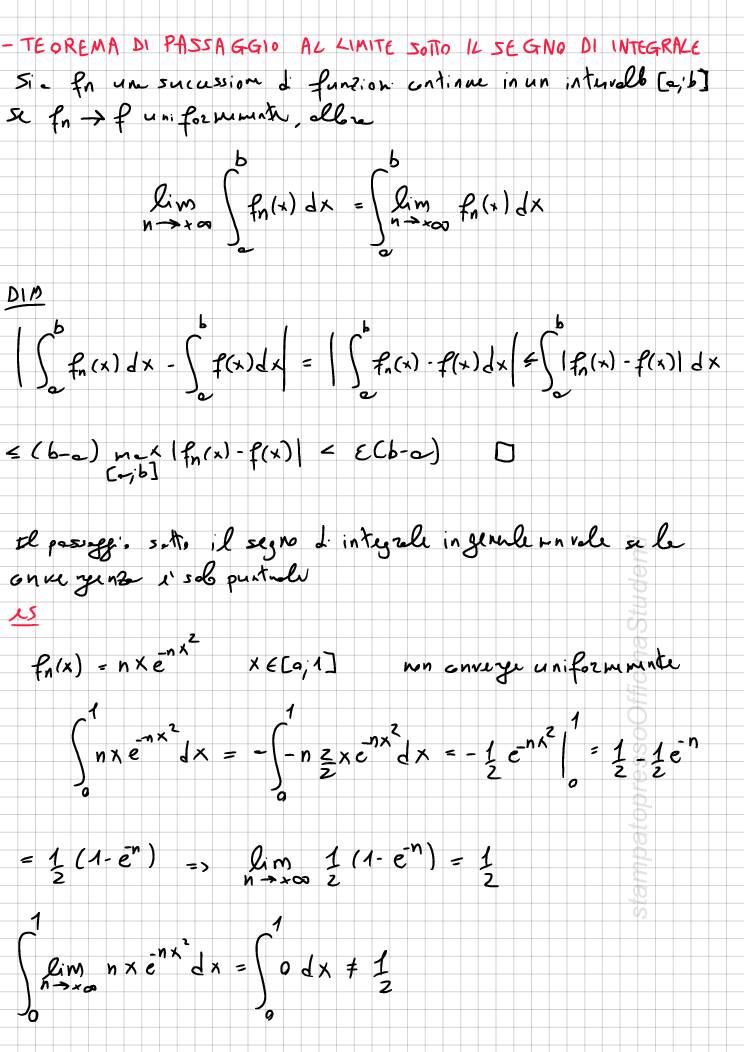 - TEOREMA DI PASSAGGIO AL LIMITE SOTTO IL SEGNO DI INTEGRALE
Sia fn una successione di funzioni continue in un intervallo [a;b]
se fn → f uniformemente, allora
lim n→+∞ ∫_a^b fn(x) dx = ∫_a^b lim n→+∞ fn(x) dx
DIM
|∫_a^b fn(x) dx - ∫_a^b f(x) dx| = |∫_a^b fn(x) - f(x) dx| ≤ ∫_a^b |fn(x) - f(x)| dx
≤ (b-a) max [a;b] |fn(x) - f(x)| < ε(b-a) □
Il passaggio sotto il segno di integrale in generale non vale se la
convergenza è solo puntuale
es
fn(x) = nxe^{-nx^2} x∈[0;1] non converge uniformemente
∫_0^1 nxe^{-nx^2} dx = -∫_0^1 -n 2/2 xe^{-nx^2} dx = -1/2 e^{-nx^2} |_0^1 = 1/2 - 1/2 e^{-n}
= 1/2 (1-e^{-n}) => lim n→+∞ 1/2 (1-e^{-n}) = 1/2
∫_0^1 lim n→+∞ nxe^{-nx^2} dx = ∫_0^1 0 dx ≠ 1/2
stampatopressoOfficinaStudenti